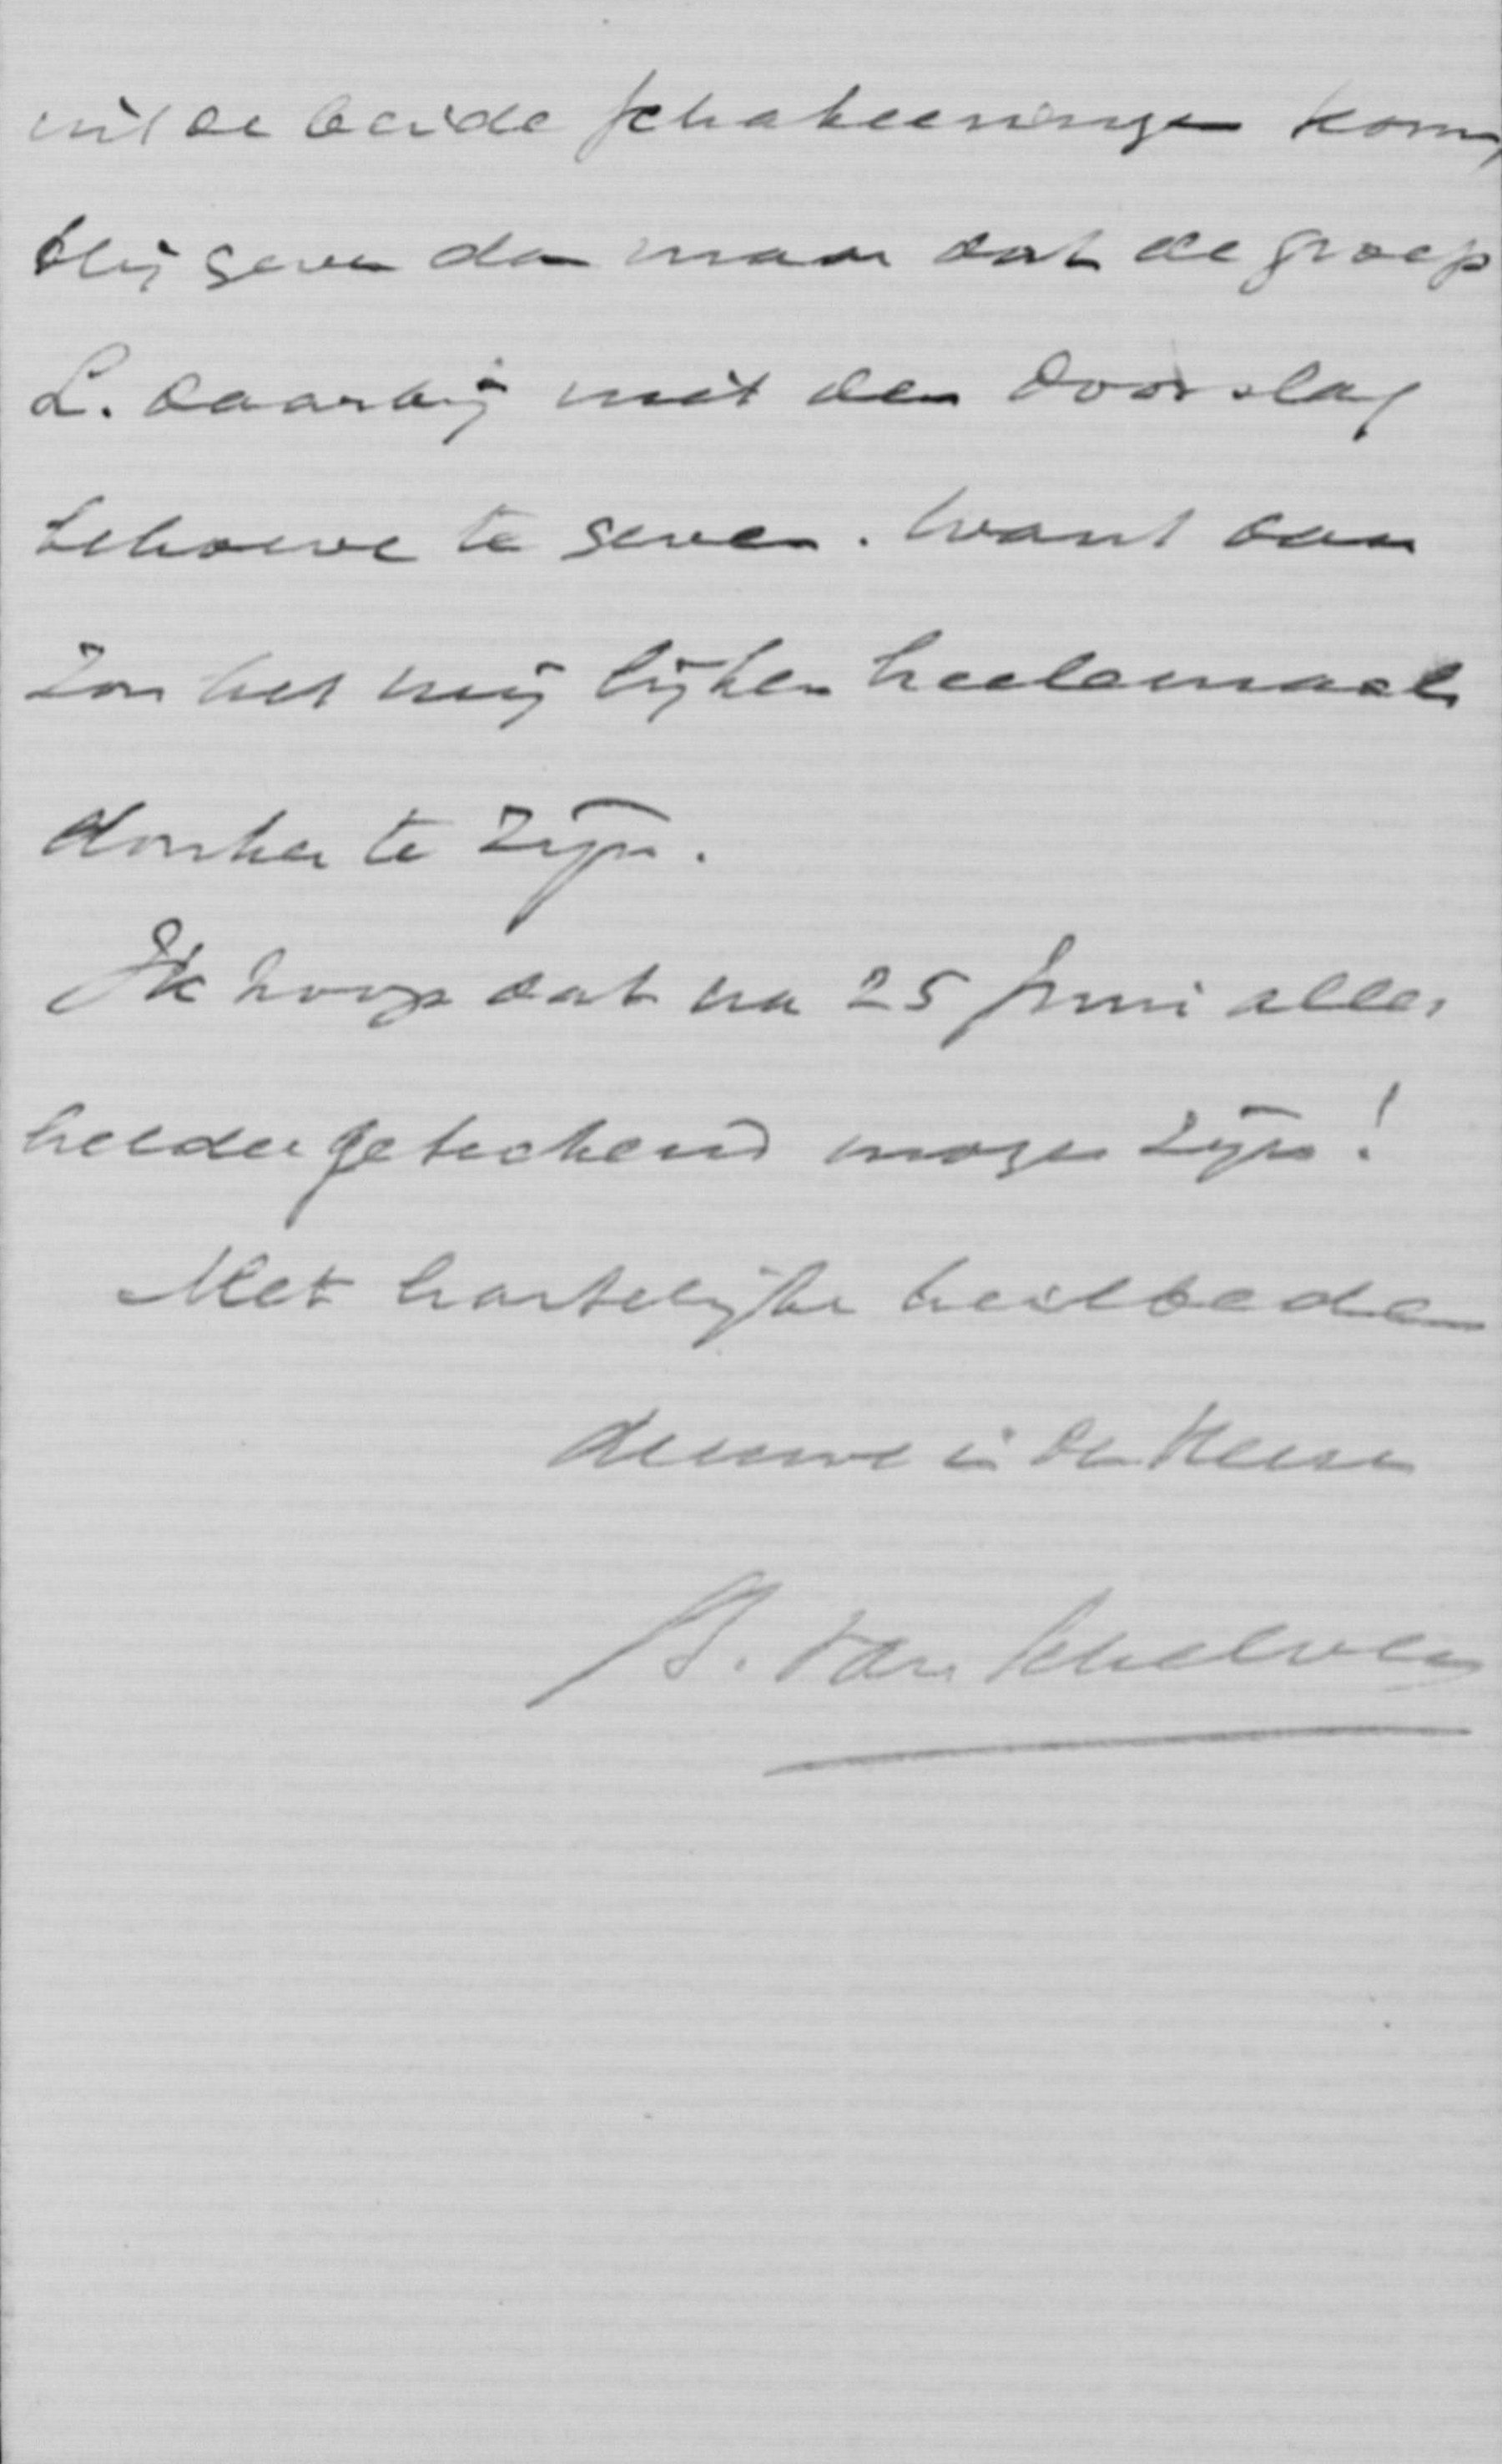 uit de beide schakeeringen kom,
blij geven dan maar dat de groep
L. daarbij niet den doorslag
behoeve te geven. Want dan
zou het mij lijken heelemaal
donker te zijn.
Ik hoop dat na 25 Juni alles
helder geteekend moge zijn!
Met hartelijke heilbede
de uwe in den Heere
B. van Schelven